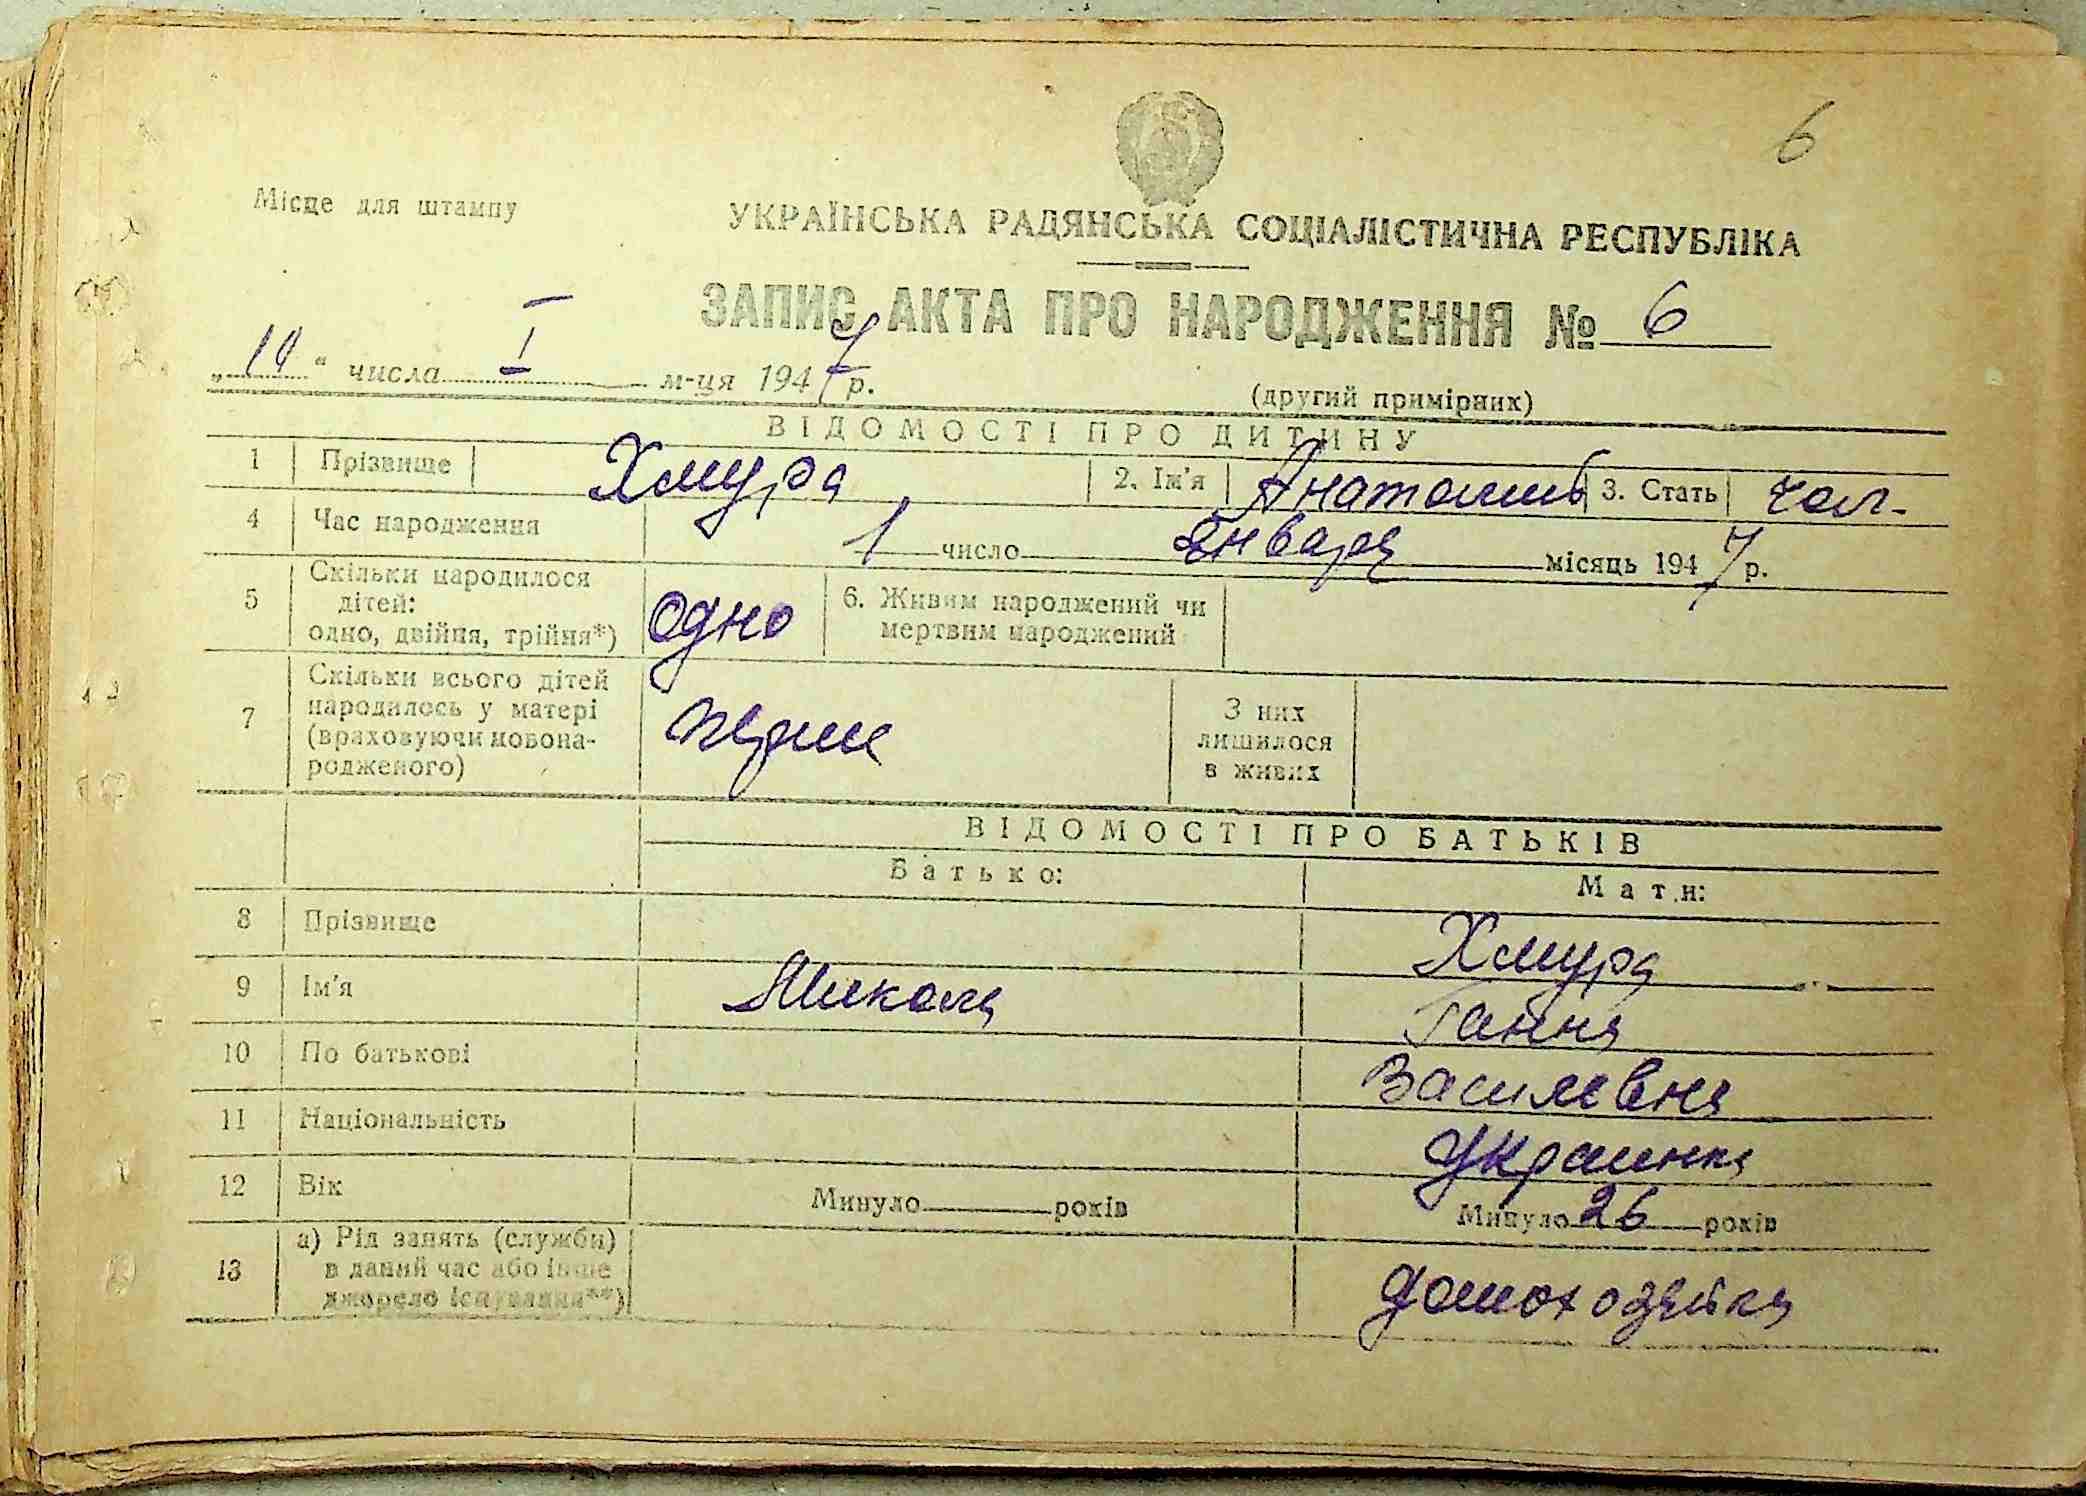 6
Місце для штампу
УКРАЇНСЬКА РАДЯНСЬКА СОЦІАЛІСТИЧНА РЕСПУБЛІКА
ЗАПИС АКТА ПРО НАРОДЖЕННЯ № 6
„ “ числа I м-ця 1947 р.
(другий примірник)
ВІДОМОСТІ ПРО ДИТИНУ
1 Прізвище Хмура 2. Ім'я Анатолий 3. Стать чол.
4 Час народження 1 число Января місяць 1947 р.
5 Скільки народилося дітей: одно, двійня, трійня*) одно 6. Живим народжений чи мертвим народжений
7 Скільки всього дітей народилось у матері (враховуючи новонародженого) перше З них лишилося в живих
ВІДОМОСТІ ПРО БАТЬКІВ
Батько: Мати:
8 Прізвище Хмура
9 Ім'я Микола Ганна
10 По батькові Василевна
11 Національність Украинка
12 Вік Минуло років Минуло 26 років
13 а) Рід занять (служби) в даний час або інше джерело існування**) домохозяйка